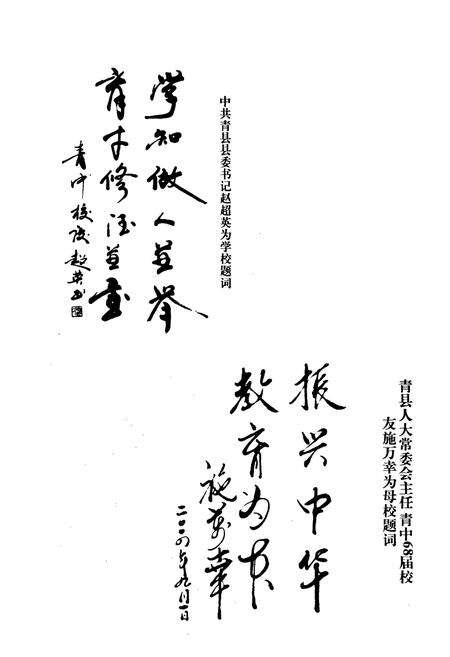 中共青县县委书记赵超英为学校题词
学知做人并举
育才修德并重
青中校庆 超英书
青县人大常委会主任 青中68届校
友施万幸为母校题词
振兴中华
教育为本
施万幸
二〇〇四年九月一日